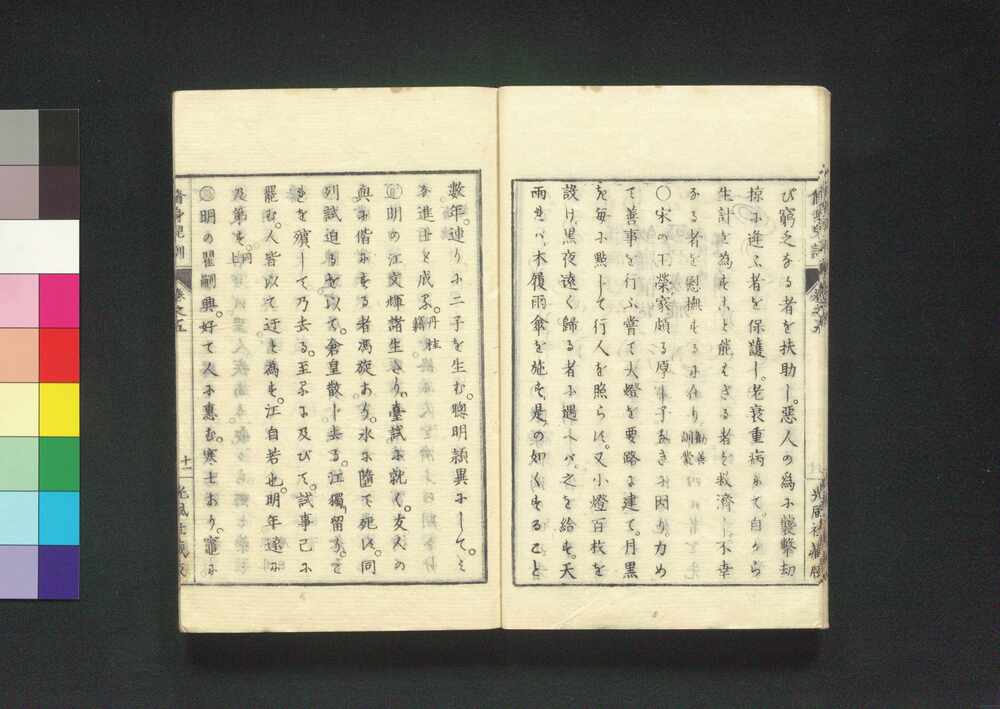 び窮乏なる者を扶助し。悪人の為に襲撃劫
掠に逢ふ者を保護し。老衰重病にて自から
生計を為すこと能はざる者を救済し。不幸
なる者を慰撫するに在り 勧善訓蒙
〇宋の王榮家頗る厚し子なきに因り。力め
て善事を行ふ嘗て大燈を要路に建て。月黒
を毎に點して行人を照らす。又小燈百枝を
設け。黒夜遠く歸る者に遇へバ。之を給す。天
雨れバ。木履雨傘を施す。是の如くすること
数年。連りに二子を生む。聰明穎異にして。
な進士と成る。丹桂籍
明の江文輝諸生たり。臺試に就く。友人の
與に偕にする者馮旋あり。水に墮て死す。同
列試迫るを以て。倉皇散じ去る。江獨り留りて
を殯して乃去る。至るに及びて。試事已に
罷む。人皆以て迂と為す。江自若也。明年遂に
及第す。同上
明の瞿嗣興。好て人に惠む。寒士あり。竈に
脩身児訓
巻之五
十一
光風社蔵版